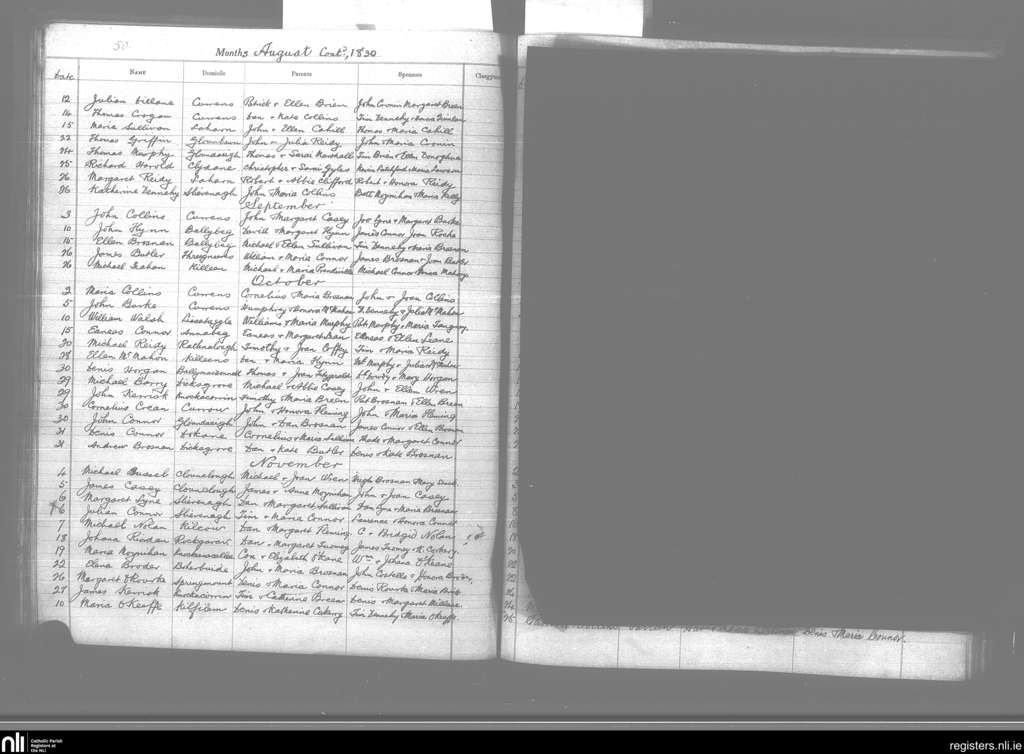 50
Months August Contd., 1830
Date Name Domicile Parents Sponsors Clergym
12 Julian Cillane Currens Patrick & Ellen Brien John Cronin Margaret Breen
14 Thomas Crogan Currens Dan & Kate Collins Tim Dennehy & Maria
15 Maria Sullivan Laharn John & Ellen Cahill Thomas & Maria Cahill
22 Thomas Griffin John & Julia Reidy John & Maria Cronin
24 Thomas Murphy Gloundaeigh Thomas & Sarai Marshall Tim Brien & Ellen Donoghue
25 Richard Harold Clydane Christopher & Sarai Gyles
26 Margaret Reidy Laharn Robert & Abbie Clifford Robert & Honora Reidy
26 Katherine Dennehy Shevenagh John Maria Collins Batt Moynihan & Maria Kelly
September
3 John Collins Currens John Margaret Casey Joe Eyne & Margaret Burke
10 John Flynn Ballybeg David & Margaret Flynn James Connor Joan Roche
16 Ellen Brosnan Ballybeg Michael & Ellen Sullivan Tim Dennehy & Maria Brosnan
26 James Butler Threegneeves William & Maria Connor James Brosnan & Joan Butler
26 Michael Leahan Killeen Michael & Maria Prendiville Michael Connor
October
2 Maria Collins Currens Cornelius Maria Brosnan John & Joan Collins
5 John Burke Currens Humphrey & Honora McMahon D. Dennehy & Julia McMahon
10 William Walsh Lissataggle Williams & Maria Murphy Pat Murphy & Maria Tangney
15 Eaneas Connor Annabeg Eaneas & Margaret Leane Eaneas & Ellen Leane
20 Michael Reidy Rathnalough Timothy & Joan Coffey Tim & Maria Reidy
28 Ellen McMahon Killeens Dan & Maria Flynn Wm Murphy & Julia McMahon
30 Denis Horgan Thomas & Joan Fitzgerald & Mary Horgan
29 Michael Barry Dicksgrove Michael & Abbie Casey John & Ellen Wren
29 John Kerrick Knockacorrin Timothy Maria Breen Pat Brosnan & Ellen Breen
30 Cornelius Crean Currow John & Honora Fleming John & Maria Fleming
30 John Connor Gloundaeigh John & Dan Brosnan James Connor & Ellen Brosnan
31 Denis Connor Dekane Cornelius & Maria Sullivan Thade & Margaret Connor
31 Andrew Brosnan Dicksgrove Dan & Kate Butler Denis & Kate Brosnan
November
4 Michael Bussel Clounclough Michael & Joan Wren Hugh Brosnan Mary
5 James Casey Clounclough James & Anne Moynihan John & Joan Casey
6 Margaret Lyne Shevenagh Dan & Margaret Sullivan Dan Eyne & Maria Brosnan
6 Julian Connor Shevenagh Tim & Maria Connor Laurence & Honora Connor
7 Michael Nolan Kilcow Dan Margaret Fleming C & Bridgid Nolan
18 Johana Riordan Rockgarriv Dan & Margaret Twomey James Twomey & M. Corkery
19 Maria Moynihan Con & Elizabeth O'Keane Wm & Johana O'Keane
22 Elena Broder Boherbuide John & Maria Brosnan John Costello & Honora Broder
26 Margaret O'Rourke Springmount Denis & Maria Connor Denis Rourke Maria
27 James Kerrick Knockacorrin Tim & Catherine Breen Denis & Margaret
10 Maria O'Keaffe Kilfilem Denis & Katherine Cokery Tim Dennehy Maria O'Keaffe
Denis & Maria Connor.
nli Catholic Parish Registers at the NLI
registers.nli.ie